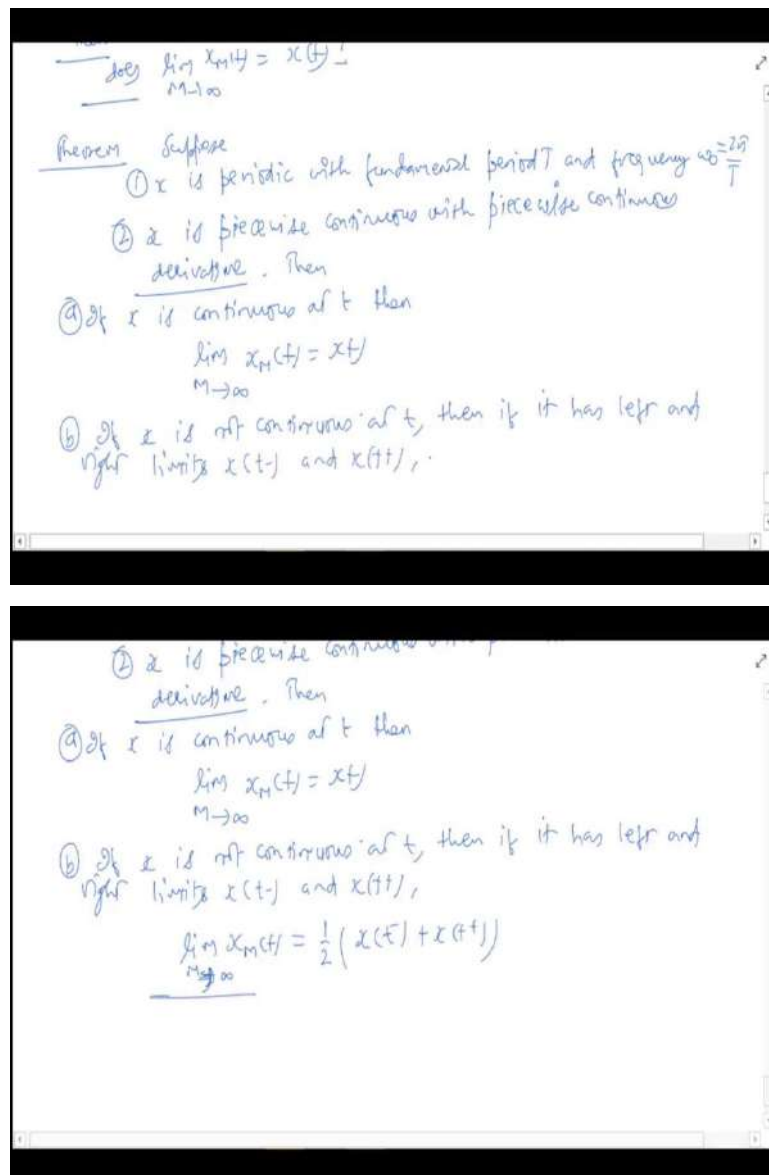 does lim x_M(t) = x(t)?
M→∞
Theorem Suppose
① x is periodic with fundamental period T and frequency ω₀ = 2π/T
② x is piecewise continuous with piecewise continuous
derivative. Then
ⓐ If x is continuous at t then
lim x_M(t) = x(t)
M→∞
ⓑ If x is not continuous at t, then if it has left and
right limits x(t-) and x(t+),
② x is piecewise continuous
derivative. Then
ⓐ If x is continuous at t then
lim x_M(t) = x(t)
M→∞
ⓑ If x is not continuous at t, then if it has left and
right limits x(t-) and x(t+),
lim x_M(t) = 1/2 (x(t⁻) + x(t⁺))
M→∞